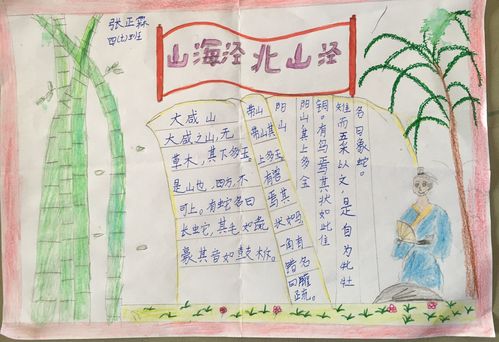 张正霖
四(七)班
山海泾 北山泾
大咸山
大咸之山,无
草木,其下多玉
是山也,四方,不
可上。有蛇名曰
长蛇,其毛如彘
豪其音如鼓柝。
带山
带山其
上多玉
有兽
焉其
状如马
一角有
错名
曰䑏
疏。
阳山
阳山其上多金
铜。有鸟焉其状如此隹
雉而五采以文,是自为牝牡
名曰象蛇。